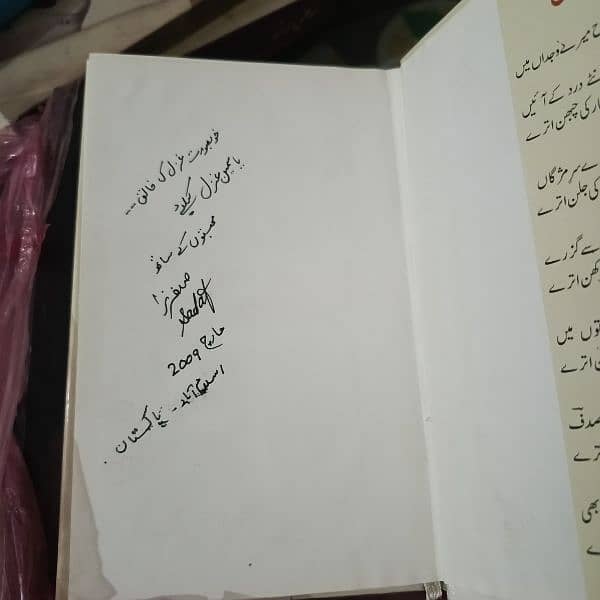 خوبصورت غزل کی خالق --
یاسمین غزل کیلئے
محبتوں کے ساتھ
صدف مرزا
Sadaf
مارچ 2009
اسلام آباد - پاکستان .
میرے وجداں میں
نئے درد کے آئیں
کی چبھن اترے
سرِ مژگاں
کی جلن اترے
سے گزرے
اترے
میں
اترے
صدف
اترے
بھی